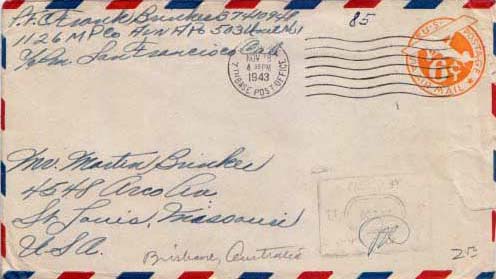 Pfc Frank Brinker 37409248
1126 M P Co Avn APO 503 Unit 1
% Pm. San Francisco Cal
85
NOV
PM
1943
BASE POST OFFICE
U.S. POSTAGE
6¢
AIR MAIL
Mr. Martin Brinker
4548 Arco Av
St Louis, Missouri
USA.
Brisbane, Australia